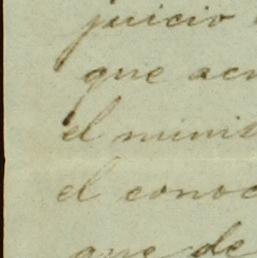 juicio
que acr
el minist
el conoc
que de